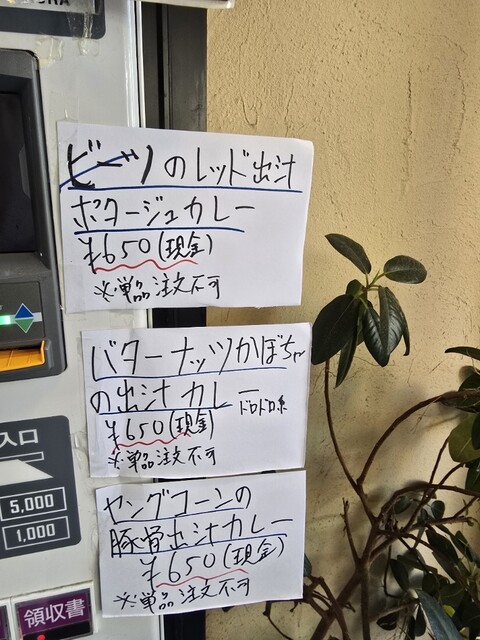 ビーツのレッド出汁
ポタージュカレー
¥650(現金)
※単品注文不可
バターナッツかぼちゃ
の出汁カレー ドロドロ系
¥650(現金)
※単品注文不可
ヤングコーンの
豚骨出汁カレー
¥650(現金)
※単品注文不可
入口
5,000
1,000
領収書